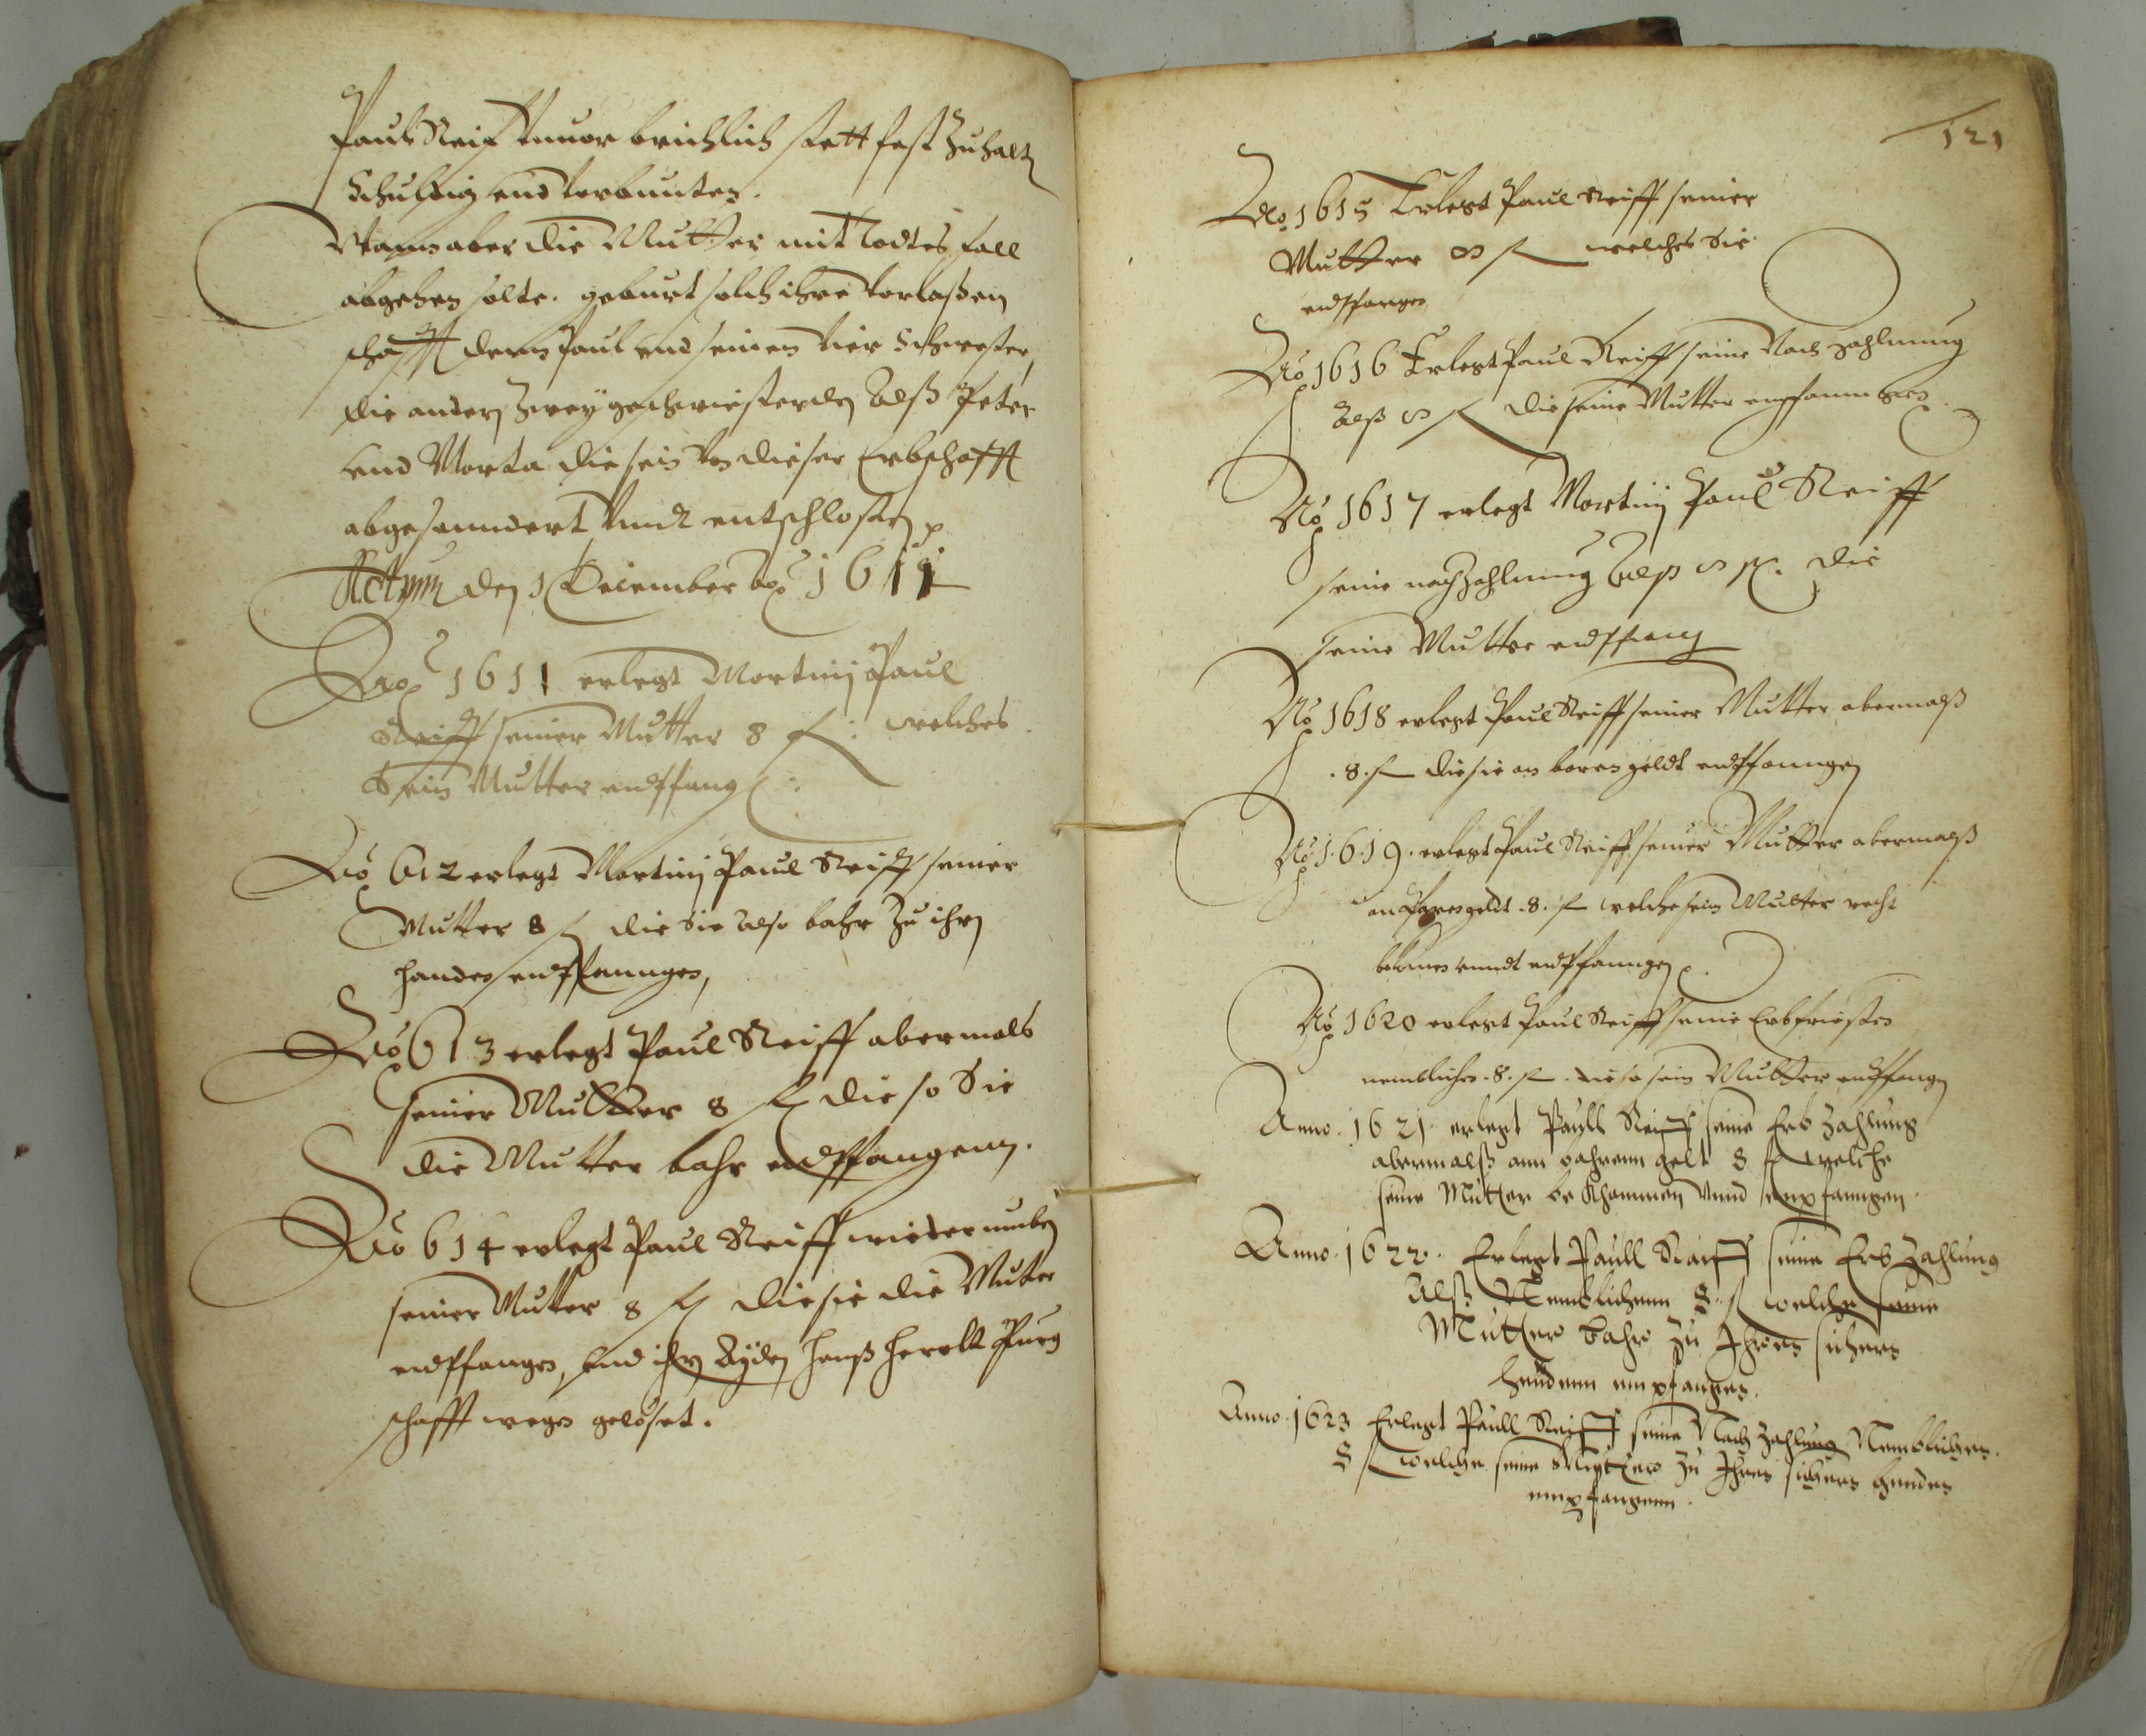 Paul Reif Vnuorbrichlich stett fest Zuhalten
Schuldig vnd verbunten.
Wann aber die Mutter mit Todtes fall
abgehen solte. geburt solch ihre verlaßen
schafft denn Paul vnd seinen vier Schwester,
die andern Zwey geschwiesterden Alß Peter
vnd Marta die sein von dieser Erbschafft
abgesaundert vnndt entschlossen
Actum den 1 December Ao 1611
Ao 1611 erlegt Martinj Paul
Reiff seiner Mutter 8 fl: welches
Sein Mutter endtfang:
Ao 612 erlegt Martinj Paul Reiff seiner
Mutter 8 fl die Sie Also bahr Zu ihrn
handen endtfaunngen,
Ao 613 erlegt Paul Reiff abermals
seiner Mutter 8 fl die so Sie
die Mutter bahr endtfangenn.
Ao 614 erlegt Paul Reiff wiederumben
seiner Mutter 8 fl die sie die Muter
endtfangen, vnd ihrn Ayden Hanß Herolt Purg
schafft wegen geloset.
121
Ao 1615 Erlegt Paul Reiff seiner
Mutter 8 fl welches Sie
endtfangen
Ao 1616 Erlegt Paul Reiff seine Nach Zahlnung
Alß 8 fl die seine Mutter empfanngen
Ao 1617 erlegt Martinj Paul Reiff
seine nachzahlnung Alß 8 fl. die
seine Mutter endtfang
Ao 1618 erlegt Paul Reiff seiner Mutter abermalß
.8. fl die sie an baren geldt endtfanngen
Ao 1619. erlegt Paul Reiff seiner Mutter abermalß
an paren geldt .8. fl welche sein Mutter recht
bekumen vnndt endtfanngen
Ao 1620 erlegt Paul Reiff seine Erbfriesten
nemblichen .8. fl. die so sein Mutter endtfangen
Anno. 1621. erlegt Paull Reiff seine Erb Zahlung
abermalß ann bahrenn gelt 8 fl welche
seine Mutter be Khommen Vnnd empfanngen.
Anno. 1622. Erlegt Paull Raiff seine Erb Zahlung
Alß Nemblichenn 8. fl welche seine
Mutter bahr Zu Ihren sichern
hendenn empfangen.
Anno. 1623 Erlegt Paull Reiff seine Nach Zahlung Nemblichen.
8 fl welche seine Mutter Zu Ihren sichern henden
empfangenn.